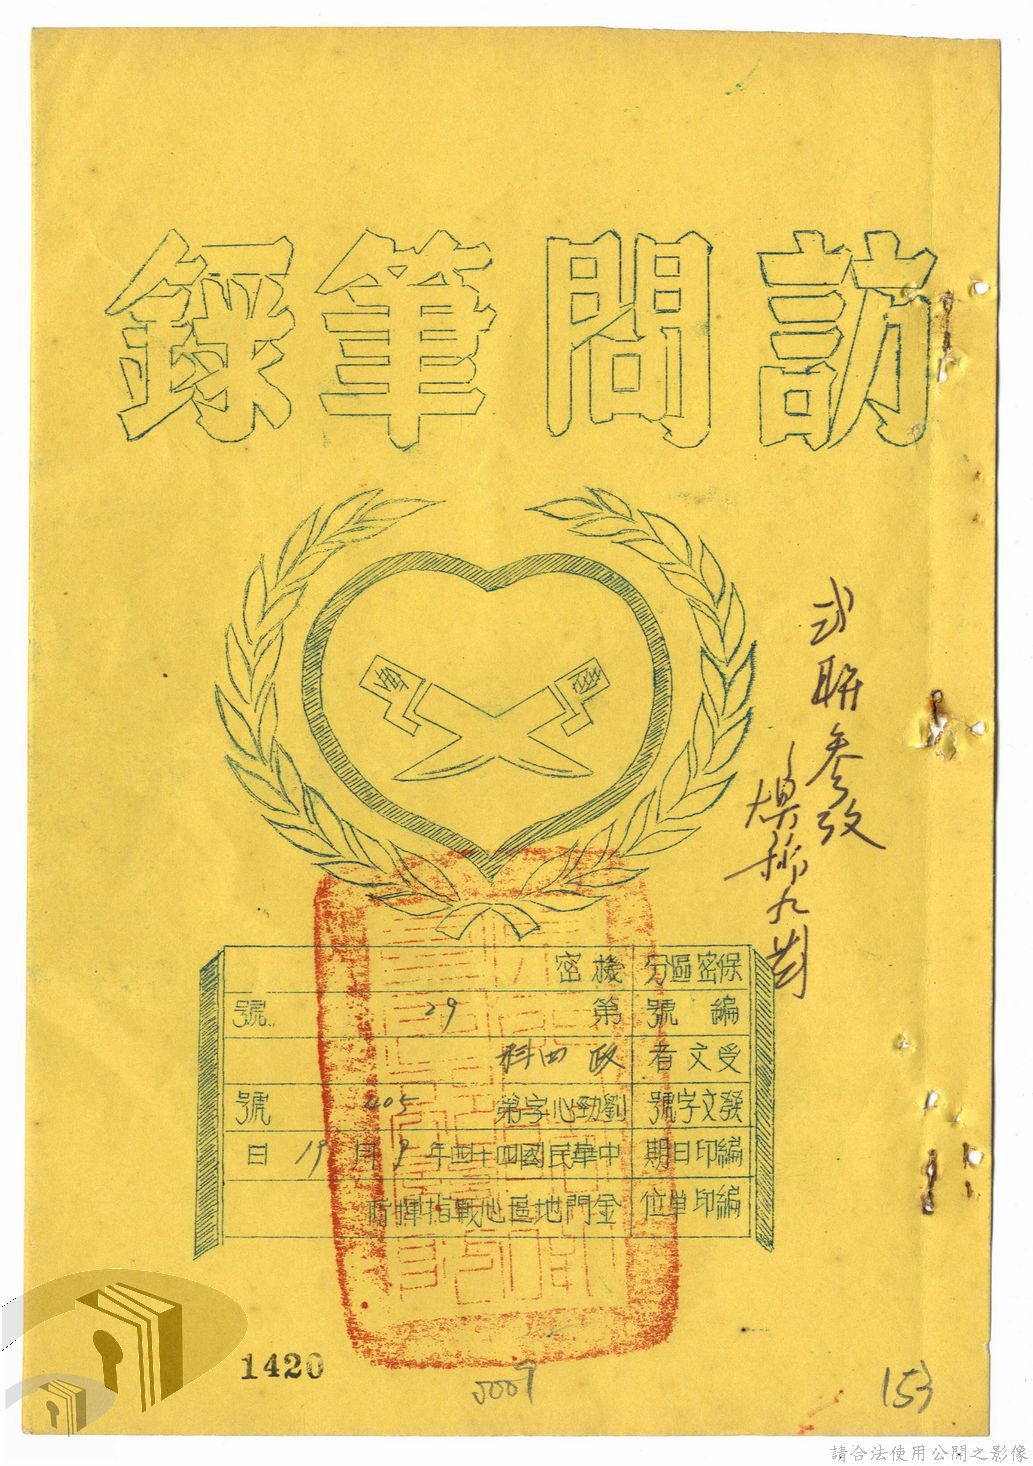 訪問筆錄
保密區分 機密
編號 第29號
受文者 政四科
發文字號 劉勁心字第405號
編印日期 中華民國四十四年9月19日
編印單位 金門地區心戰指揮所
1420
153
請合法使用公開之影像